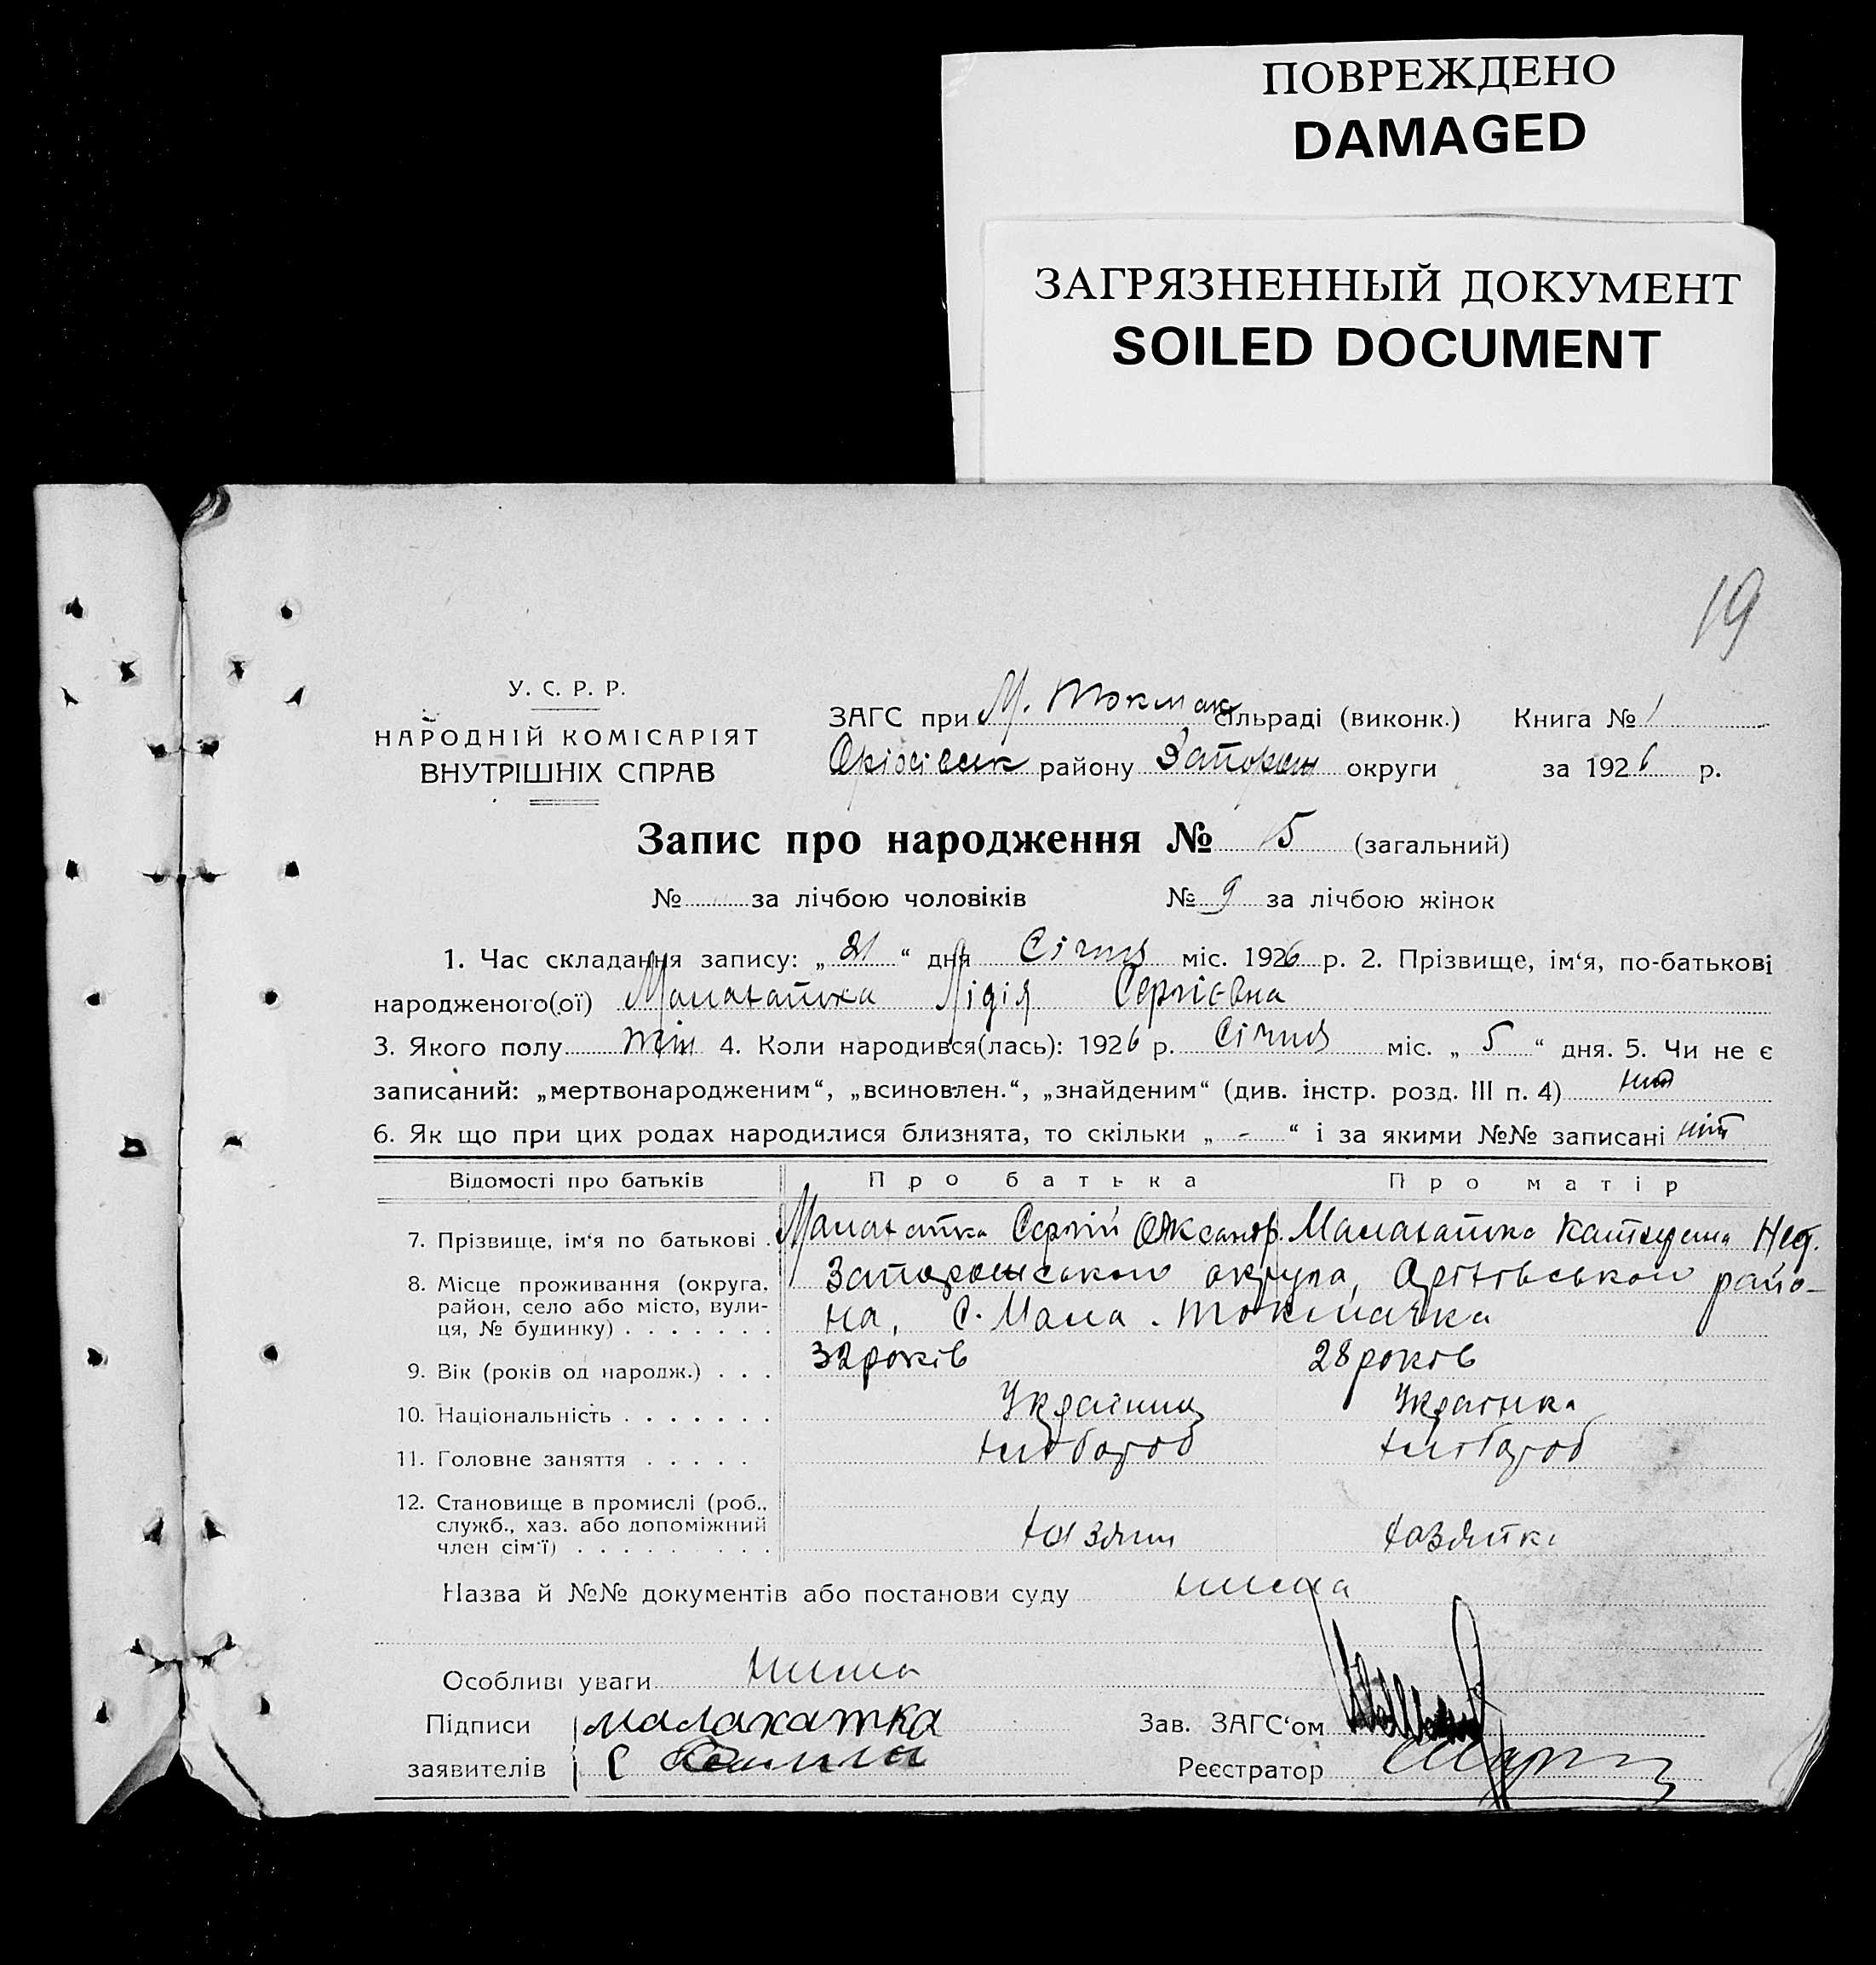 ПОВРЕЖДЕНО
DAMAGED
ЗАГРЯЗНЕННЫЙ ДОКУМЕНТ
SOILED DOCUMENT
19
У. С. Р. Р.
НАРОДНІЙ КОМІСАРІЯТ
ВНУТРІШНІХ СПРАВ
ЗАГС при М. Токмак сільраді (виконк.) Книга № 1
Оріхівськ району Запорож округи за 1926 р.
Запис про народження № 15 (загальний)
№ за лічбою чоловіків № 9 за лічбою жінок
1. Час складання запису: „ 21 “ дня Січня міс. 1926 р. 2. Прізвище, ім‘я, по-батькові
народженого(ої) Малахатька Лідія Сергієвна
3. Якого полу жін 4. Коли народився(лась): 1926 р. Січня міс. „ 5 “ дня. 5. Чи не є
записаний: „мертвонародженим“, „всиновлен.“, „знайденим“ (див. інстр. розд. III п. 4) ні
6. Як що при цих родах народилися близнята, то скільки „ - “ і за якими №№ записані ніт
Відомості про батьків Про батька Про матір
7. Прізвище, ім‘я по батькові . Малахатька Сергій Олександр. Малахатько Катерина
8. Місце проживання (округа, Запорожською округа, Оріхівською райо-
район, село або місто, вули- на, с. Мала . Токмачка
ця, № будинку) . . . . . . .
9. Вік (років од народж.) . . . 32 років 28 років
10. Національність . . . . . . . Українець Українка
11. Головне заняття . . . . . хлібороб хлібороб
12. Становище в промислі (роб.,
служб., хаз. або допоміжний хазяїн хазяйка
член сім‘ї) . . . . . . . . .
Назва й №№ документів або постанови суду нима
Особливі уваги нима
Підписи малахатка Зав. ЗАГС‘ом
заявителів С Реєстратор